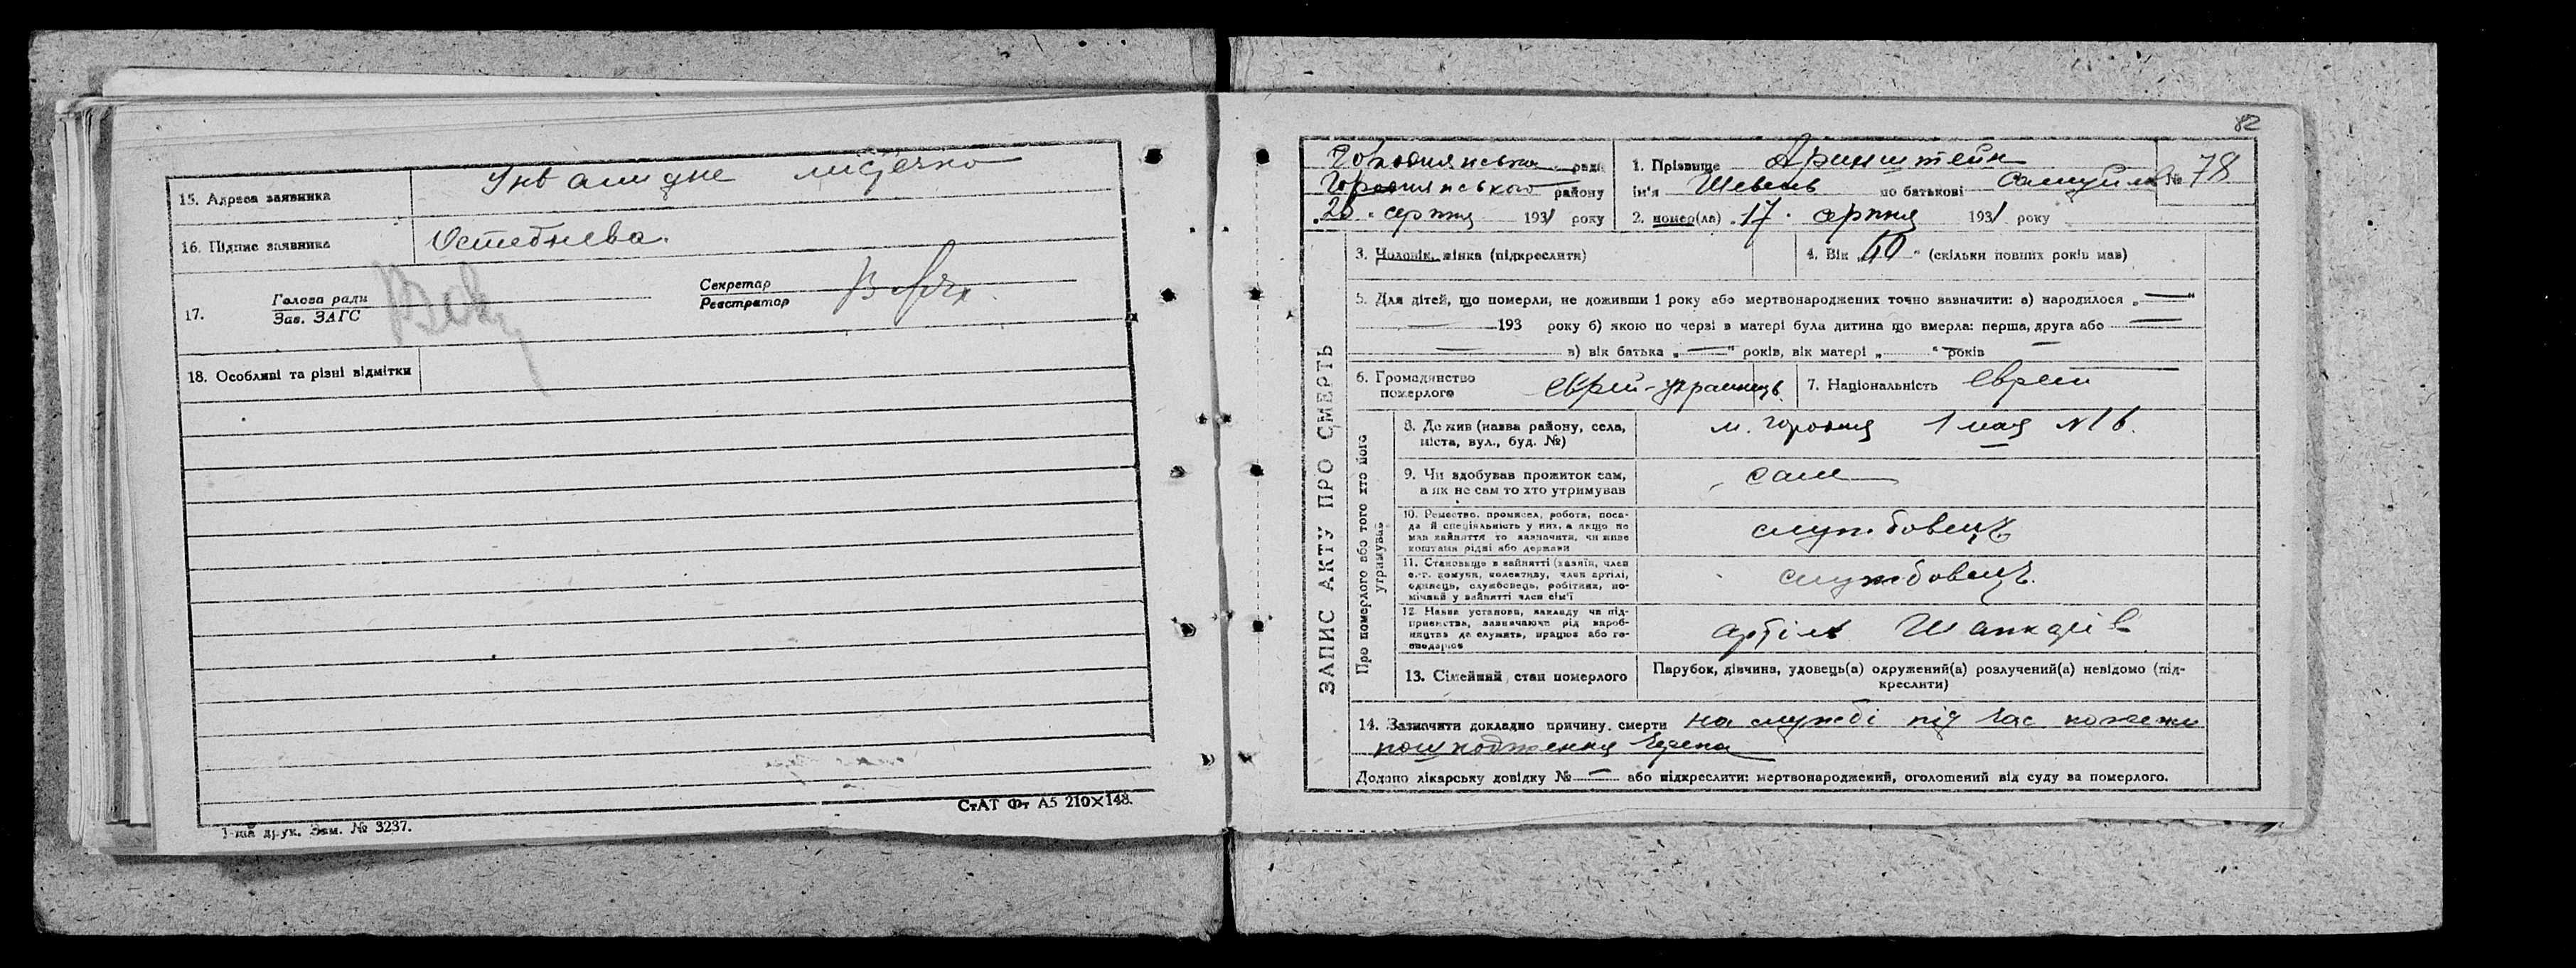 15. Адреса заявника Інвалидне містечко
16. Підпис заявника Остебнева.
17. Голова ради
Зав. ЗАГС
Секретар
Реєстратор
18. Особливі та різні відмітки
СтАТ Фт А5 210×148.
1-ша друк. Зам. № 3237.
82
Городнянська рада
Городнянського району
„20“ серпня 1931 року
1. Прізвище Аринштейн
ім'я Шевель по батькові № 78
2. помер(ла) „17“ серпня 1931 року
ЗАПИС АКТУ ПРО СМЕРТЬ
3. Чоловік, жінка (підкреслити)
4. Вік „ “ (скільки повних років мав)
5. Для дітей, що померли, не доживши 1 року або мертвонароджених точно зазначити: а) народилося „—“
— 193 року б) якою по черзі в матері була дитина що вмерла: перша, друга або —
— в) вік батька „—“ років, вік матері „—“ років
6. Громадянство
померлого єврей-українець
7. Національність еврей
Про померлого або того хто його
утримував
8. Де жив (назва району, села,
міста, вул., буд. №) м. Городня 1 мая №16.
9. Чи здобував прожиток сам,
а як не сам то хто утримував сам
10. Ремество, промисел, робота, поса-
да й спеціяльність у них, а якщо не
мав зайняття то зазначити, чи живе
коштами рідні або держави службовець
11. Становище в зайнятті (хазяїн, член
с.-г. комуни, колективу, член артілі,
одинець, службовець, робітник, по-
мічний у зайнятті член сім'ї службовець.
12. Назва установи, закладу чи під-
приємства, зазначаючи рід вироб-
ництва де служить, працює або го-
сподарює артіль
13. Сімейний стан померлого
Парубок, дівчина, удовець(а) одружений(а) розлучений(а) невідомо (під-
креслити)
14. Зазначити докладно причину смерти на службі під час пожежи
пошкодження черепа
Додано лікарську довідку №— або підкреслити: мертвонароджений, оголошений від суду за померлого.